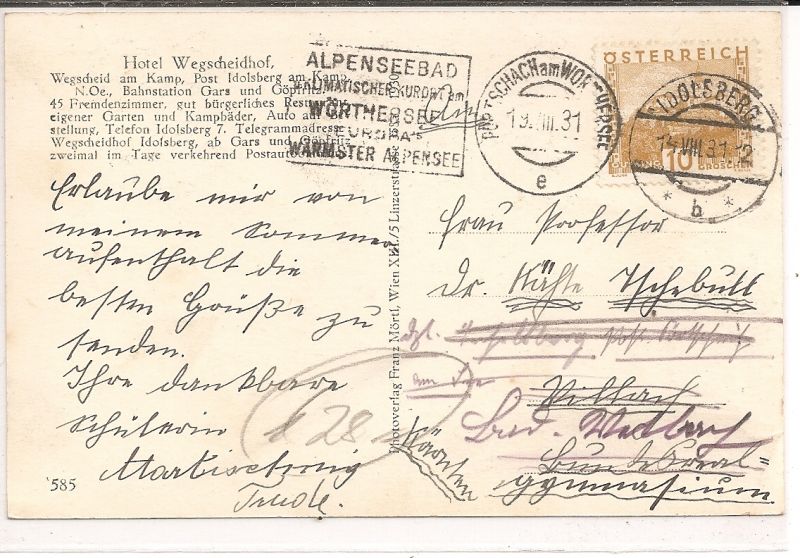 Hotel Wegscheidhof,
Wegscheid am Kamp, Post Idolsberg am Kamp
N.Oe., Bahnstation Gars und Göpfritz
45 Fremdenzimmer, gut bürgerliches
eigener Garten und Kampbäder, Auto
stellung, Telefon Idolsberg 7. Telegrammadresse
Wegscheidhof Idolsberg, ab Gars und Göpfritz
zweimal im Tage verkehrend
ALPENSEEBAD
KLIMATISCHER KURORT am
WÖRTHERSEE
EUROPAS
WÄRMSTER ALPENSEE
PÖRTSCHACH am WÖRTHERSEE
19.VIII.31
e
ÖSTERREICH
10
GROSCHEN
IDOLSBERG
15.VIII.31-12
* b *
Erlaube mir von
meinem Sommer
aufenthalt die
besten Grüße zu
senden.
Ihre dankbare
Schülerin
Trude.
585
28
Photoverlag Franz Mörtl, Wien XIII./5 Linzerstrasse
Frau Professor
Dr. Käthe Tschebull
am See
Villach
Bad.
Bundesreal=
gymnasium
Kärnten